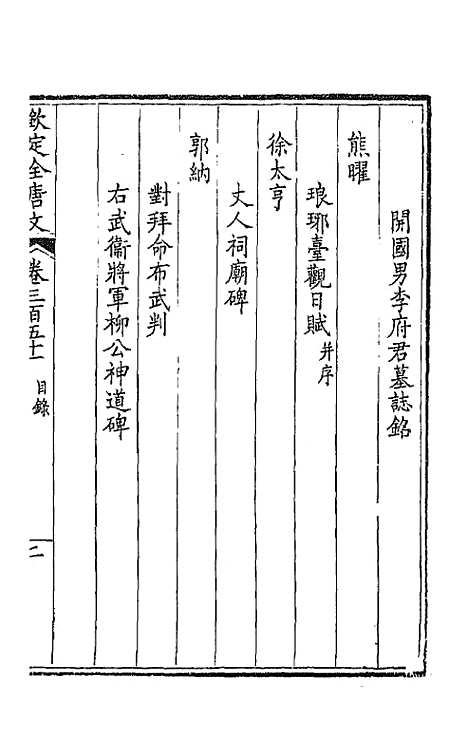 開國男李府君墓誌銘
熊曜
琅琊臺觀日賦 并序
徐太亨
丈人祠廟碑
郭納
對拜命布武判
右武衞將軍柳公神道碑
欽定全唐文 卷三百五十一 目錄 二